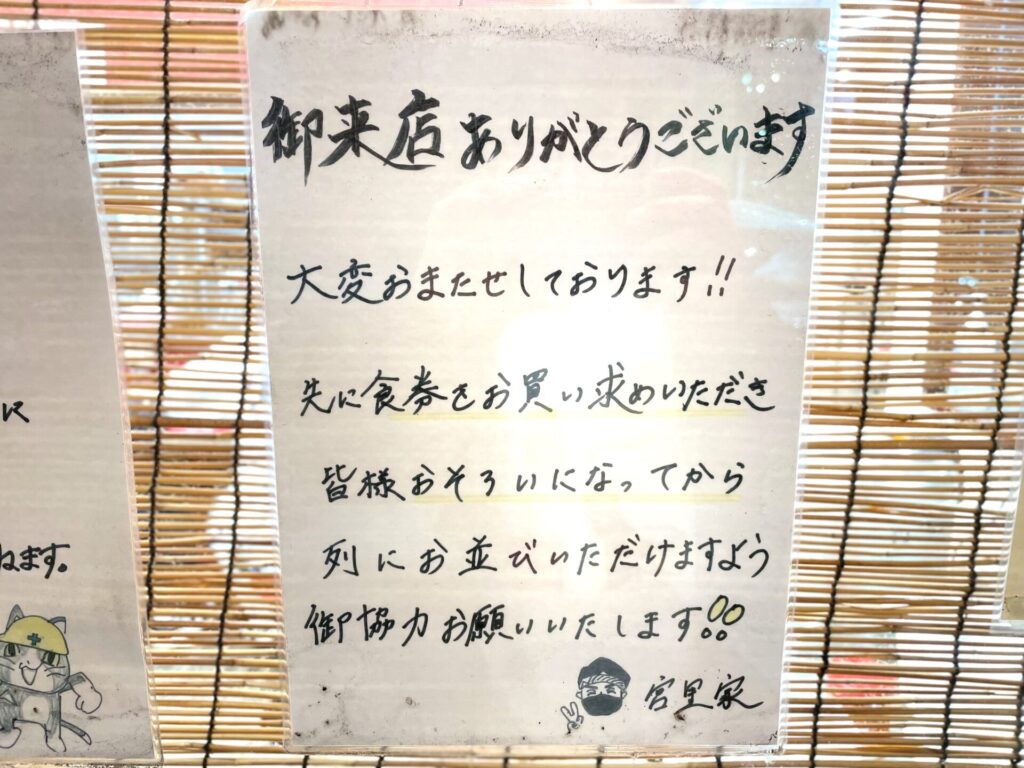 御来店ありがとうございます
大変おまたせしております!!
先に食券をお買い求めいただき
皆様おそろいになってから
列にお並びいただけますよう
御協力お願いいたします!!
宮里家
沢
ねます。